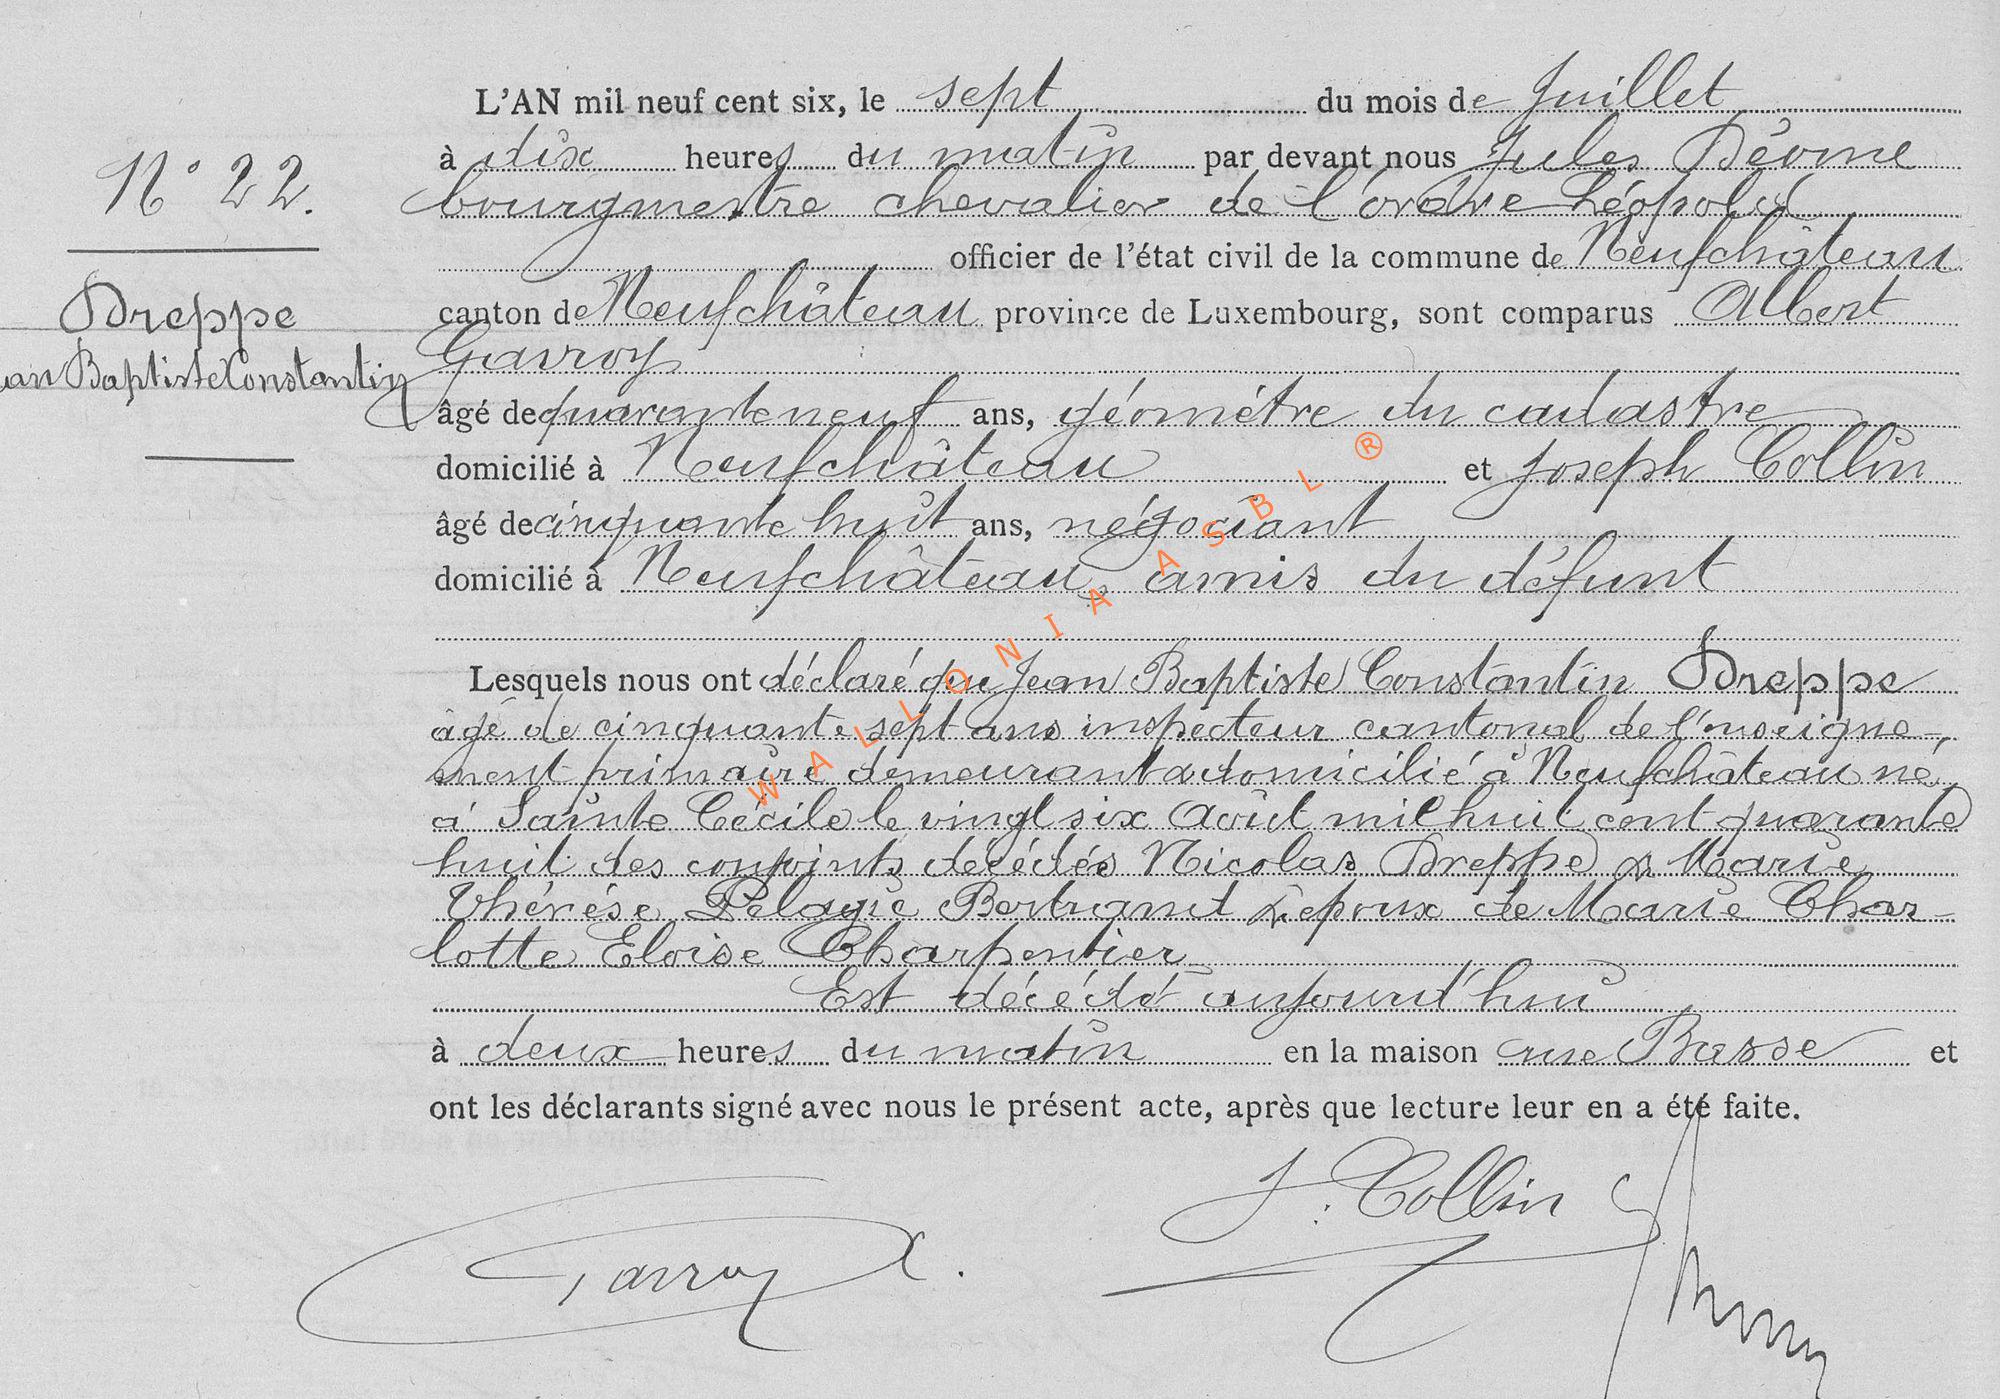 N° 22.
Dreppe
an Baptiste Constantin
L'AN mil neuf cent six, le sept du mois de Juillet
à dix heures du matin par devant nous Jules
bourgmestre chevalier de l'ordre Léopold
officier de l'état civil de la commune de Neufchâteau
canton de Neufchâteau province de Luxembourg, sont comparus Albert
Gavroy
âgé de quarante neuf ans, géomètre du cadastre
domicilié à Neufchâteau et Joseph Collin
âgé de cinquante huit ans, négociant
domicilié à Neufchâteau, amis du défunt
Lesquels nous ont déclaré que Jean Baptiste Constantin Dreppe
âgé de cinquante sept ans inspecteur cantonal de l'enseigne-
ment primaire demeurant & domicilié à Neufchâteau né
à Sainte Cécile le vingt six Août mil huit cent quarante
huit des conjoints décédés Nicolas Dreppe & Marie
Thérèse Pélagie Bertrand & époux de Marie Char-
lotte Eloïse Charpentier
Est décédé aujourd'hui
à deux heures du matin en la maison rue Basse et
ont les déclarants signé avec nous le présent acte, après que lecture leur en a été faite.
J. Collin
Gavroy
WALLONIA ASBL ®